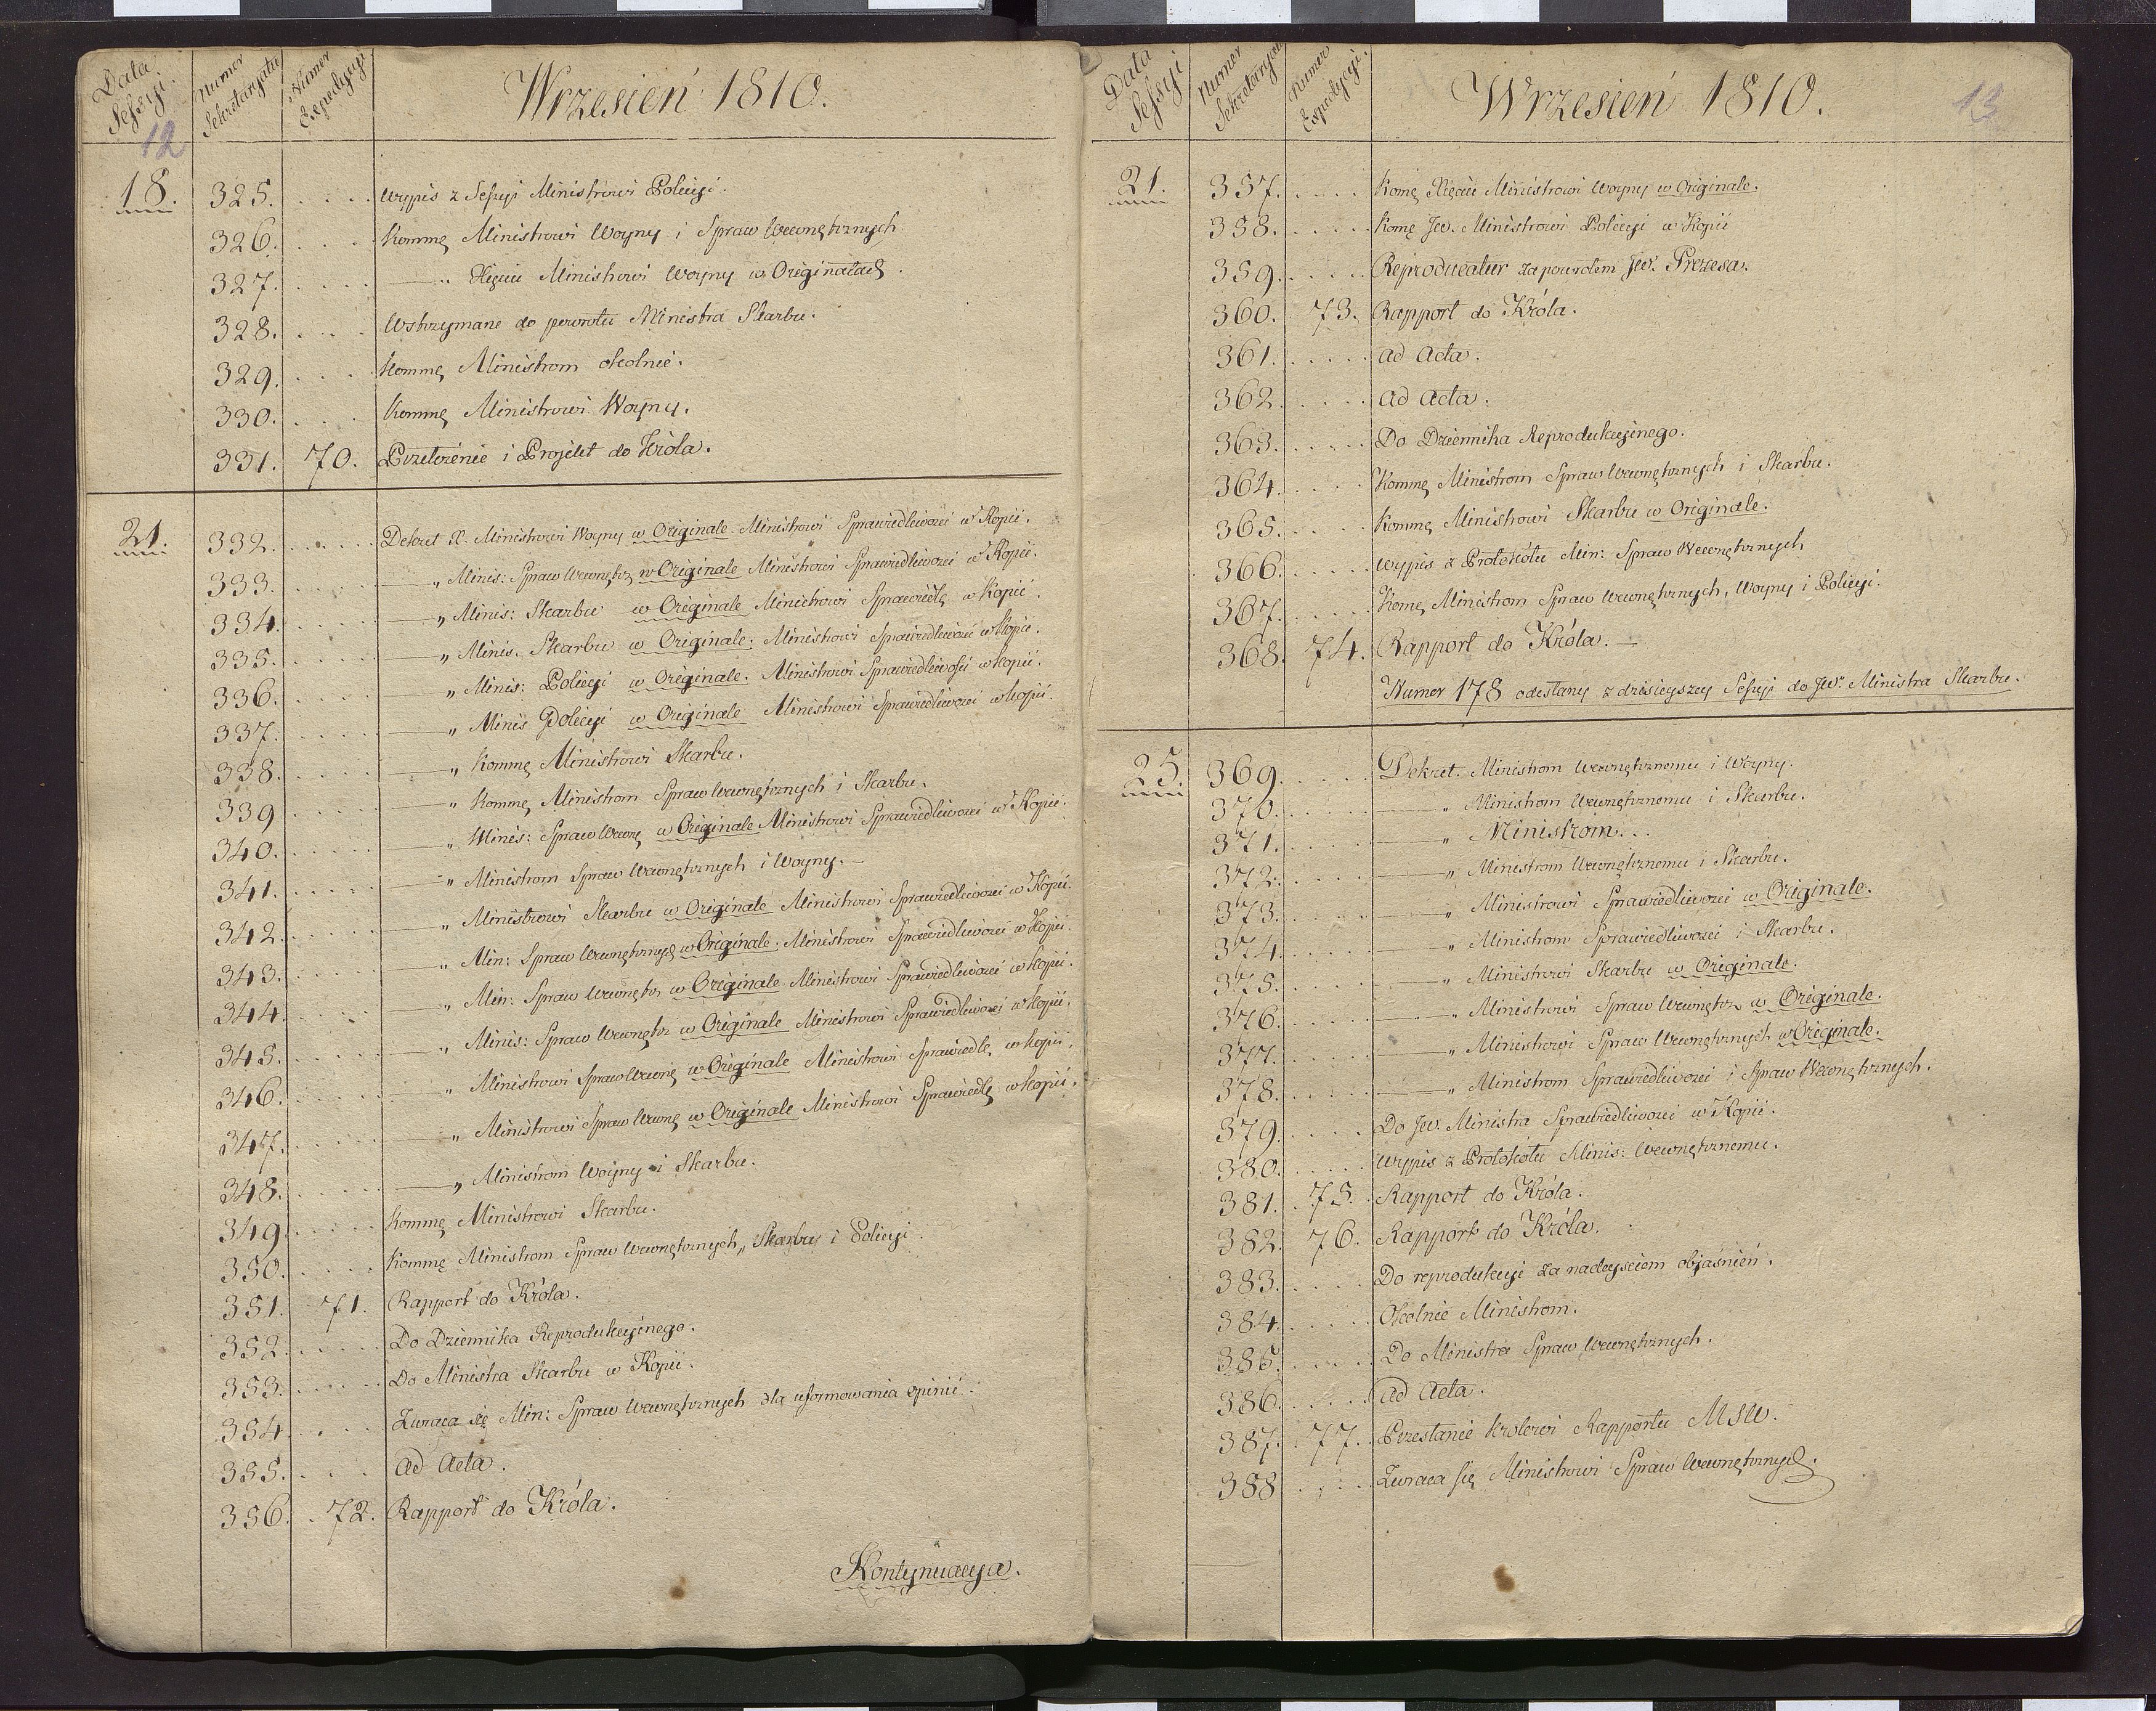 Data Sessyi.
Numer Sekretaryatu
Numer Expedycyi
Wrzesień 1810.
12
18. 325. Wypis z Sessyi Ministrowi Policyi.
326. Kommę Ministrowi Woyny i Spraw Wewnętrznych
327. —„ Xięciu Ministrowi Woyny w Originałach.
328. Wstrzymane do powrotu Ministra Skarbu.
329. Kommę Ministrom okolnie.
330. Kommę Ministrowi Woyny.
331. 70. Przełożenie i Projekt do Króla.
21. 332. Dekret X. Ministrowi Woyny w Originale. Ministrowi Sprawiedliwości w Kopii.
333. —„ Minis: Spraw Wewnętrz w Originale Ministrowi Sprawiedliwości w Kopii.
334. —„ Minis: Skarbu w Originale Ministrowi Sprawiedlę w Kopii.
335. —„ Minis. Skarbu w Originale. Ministrowi Sprawiedliwości w Kopii.
336. —„ Minis: Policyi w Originale. Ministrowi Sprawiedliwości w kopii.
337. —„ Minis Policyi w Originale Ministrowi Sprawiedliwości w kopii.
338. —„ Kommę Ministrowi Skarbu.
339 —„ Kommę Ministrom Spraw Wewnętrznych i Skarbu.
340. —„ Minis: Spraw Wewnę w Originale Ministrowi Sprawiedliwości w Kopii.
341. —„ Ministrom Spraw Wewnętrznych i Woyny.—
342. —„ Ministrowi Skarbu w Originale Ministrowi Sprawiedliwości w Kopii.
343. —„ Min: Spraw Wewnętrznych w Originale. Ministrowi Sprawiedliwości w Kopii.
344. —„ Min: Spraw Wewnętrz w Originale Ministrowi Sprawiedliwości w kopii.
345. —„ Minis: Spraw Wewnętrz w Originale Ministrowi Sprawiedliwości w kopii.
346. —„ Ministrowi Spraw Wewnę w Originale Ministrowi Sprawiedle. w kopii.
347. —„ Ministrowi Spraw Wewnę w Originale Ministrowi Sprawiedlę w kopii.
348. —„ Ministrom Woyny i Skarbu.
349. Kommę Ministrowi Skarbu.
350. Kommę Ministrom Spraw Wewnętrznych, Skarbu i Policyi.
351. 71. Rapport do Króla.
352. Do Dziennika Reprodukcyinego.
353. Do Ministra Skarbu w Kopii.
354. Zwraca się Min: Spraw Wewnętrznych dla uformowania opinii.
355. Ad Acta.
356. 72. Rapport do Króla.
Kontynuacya.
Data Sessyi
Numer Sekretaryatu
Numer Expedycyi.
Wrzesień 1810.
13
21. 357. Komę Xięciu Ministrowi Woyny w Originale.
358. Komę Jw. Ministrowi Policyi w Kopii
359. Reproducatur za powrotem Jw. Prezesa.
360. 73. Rapport do Króla.
361. ad Acta.
362. ad Acta.
363. Do Dziennika Reprodukcyinego.
364. Kommę Ministrom Spraw Wewnętrznych i Skarbu.
365. Kommę Ministrowi Skarbu w Originale.
366. Wypis z Protokółu Min: Spraw Wewnętrznych
367. Komę Ministrom Spraw Wewnętrznych, Woyny i Policyi.
368. 74. Rapport do Króla.—
Numer 178 odesłany z dzisieyszey Sessyi do Jw. Ministra Skarbu.
25. 369. Dekret. Ministrom Wewnętrznemu i Woyny.
370. —„ Ministrom Wewnętrznemu i Skarbu.
371. —„ Ministrom...
372. —„ Ministrom Wewnętrznemu i Skarbu.
373. —„ Ministrowi Sprawiedliwości w Originale.
374. —„ Ministrom Sprawiedliwości i Skarbu.
375. —„ Ministrowi Skarbu w Originale.
376. —„ Ministrowi Spraw Wewnętrz w Originale.
377. —„ Ministrowi Spraw Wewnętrznych w Originale.
378. —„ Ministrom Sprawiedliwości i Spraw Wewnętrznych.
379. Do Jw. Ministra Sprawiedliwości w Kopii.
380. Wypis z Protokółu Minis: Wewnętrznemu.
381. 75. Rapport do Króla.
382. 76. Rapport do Króla.
383. Do reprodukcyi za nadeyściem objaśnień.
384. Okolnie Ministrom.
385. Do Ministra Spraw Wewnętrznych.
386. ad Acta.
387. 77. Przesłanie Krolowi Rapportu MSW.
388 Zwraca się Ministrowi Spraw Wewnętrznych.